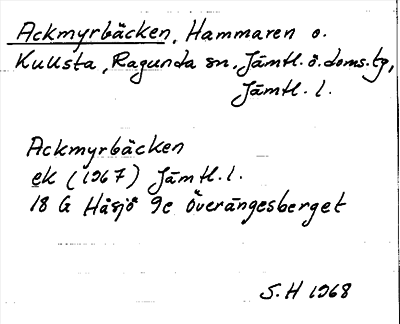 Ackmyrbäcken, Hammaren o.
Kullsta, Ragunda sn, Jämtl. ö. doms. tg,
Jämtl. l.
Ackmyrbäcken
ek (1967) Jämtl. l.
18 G Håsjö 9e Överängesberget
S. H 1968